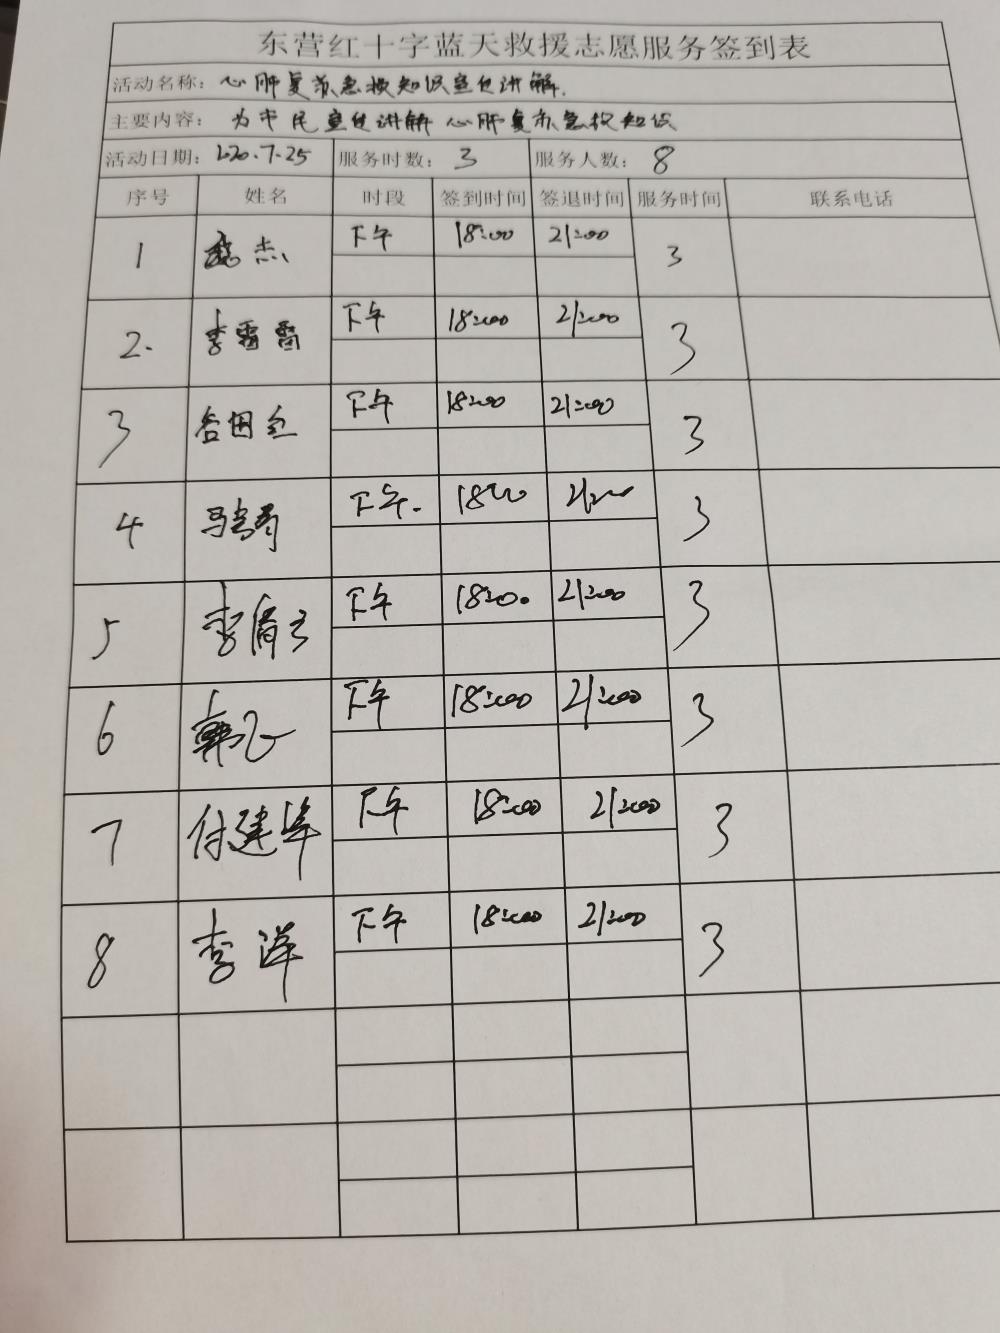 东营红十字蓝天救援志愿服务签到表
活动名称：心肺复苏急救知识宣传讲解.
主要内容：为市民宣传讲解心肺复苏急救知识
活动日期：2020.7.25 服务时数：3 服务人数：8
序号 姓名 时段 签到时间 签退时间 服务时间 联系电话
1 杰 下午 18:00 21:00 3
2. 李雷雷 下午 18:00 21:00 3
3 下午 18:00 21:00 3
4 下午. 18:00 21:00 3
5 李 下午 18:00. 21:00 3
6 韩飞 下午 18:00 21:00 3
7 付建华 下午 18:00 21:00 3
8 李洋 下午 18:00 21:00 3